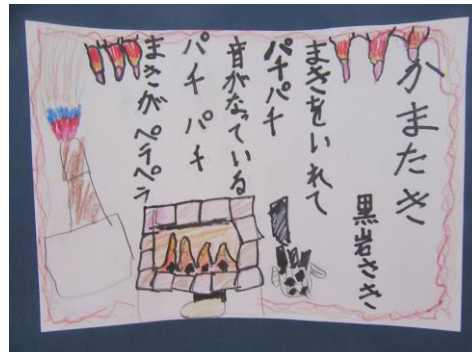 かまたき
黒岩さき
まきをいれて
パチパチ
音がなっている
パチパチ
まきがペラペラ